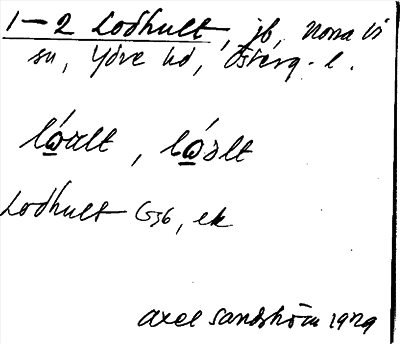 1-2 Lodhult, jb, Norra Vi
sn, Ydre hd, Österg. l.
lóult, lóolt
Lodhult G36, ek
Axel Sandström 1929